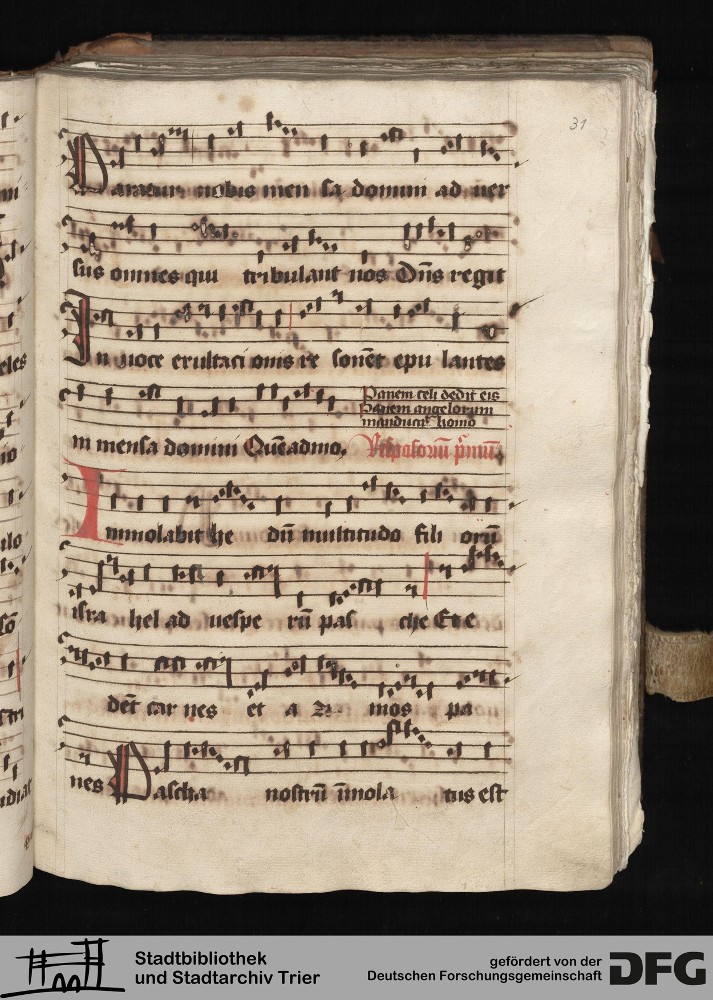 31
Paratur nobis men sa domini ad uer
sus omnes qui tribulant nos Dn̄s regit
In uoce exultaci onis re sonēt epu lantes
Panem celi dedit eis
Panem angelorum
manducauit homo
in mensa domini Quēadmo.
Immolabit he dū multitudo fili orū
isra hel ad uespe rū pas che Et e
dēt car nes et a zi mos pa
nes Pascha nostrū īmola tus est
Stadtbibliothek
und Stadtarchiv Trier
gefördert von der
Deutschen Forschungsgemeinschaft
DFG